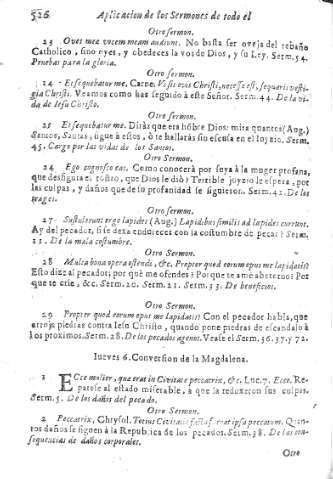 526 Aplicacion de los Sermones de todo el
Otro sermon.
23 Oves meæ vocem meam audiunt. No basta ser oveja del rebaño
Catholico, sino oyes, y obedeces la voz de Dios, y su Ley. Serm. 54.
Pruebas para la gloria.
Otro sermon.
24 Et sequuntur me. Carne. Vis si ovis Christi, necesse est, sequaris vesti-
gia Christi. Veamos como has seguido à este Señor. Serm. 44. De la vi-
da de Iesu Christo.
Otro sermon.
25 Et sequuntur me. Diràs que era hõbre Dios: mira quantos (Aug.)
Santos, Santas, sigue à estos, ò te hallaràs sin escusa en el Iuyzio. Serm.
45. Cargo por las vidas de los Santos.
Otro Sermon.
24 Ego cognosco eas. Como conocerà por suya à la muger profana,
que desfigura el rostro, que Dios le diò? Terrible juyzio le espera, por
las culpas, y daños que de su profanidad se siguieron. Serm. 42. De los
trages.
Otro sermon.
27 Sustulerunt ergo lapides (Aug.) Lapidibus similes ad lapides currunt.
Ay del pecador, si se dexa endureces con la costumbre de pecar! Serm.
11. De la mala costumbre.
Otro sermon.
28 Multa bona opera ostendi, &c. Propter quod eorum opus me lapidatis?
Esto dize al pecador; por què me ofendes? Porque te amè
Por que te criè, &c. Serm. 20. Serm. 21. Serm. 33. De beneficios.
Otro Sermon.
29 Propter quod eorum opus me lapidatis? Con el pecador habla, que
arroja piedras contra Iesu Christo, quando pone piedras de escandalo à
los proximos. Serm. 28. De los pecados agenos. Vease el Serm. 36. 37. y 72.
Iueves 6. Conversion de la Magdalena.
1 ECce mulier, quæ erat in Civitate peccatrix, &c. Luc. 7. Ecce. Re-
parose al estado miserable, à que la reduxeron sus culpas.
Serm. 5. De los daños del pecado.
Otro Sermon.
2 Peccatrix, Chrysol. Totius Civitatis facta erat ipsa peccatum. Quan-
tos daños se siguen à la Republica de los pecados. Serm. 38. De las con-
sequencias de daños corporales.
Otro